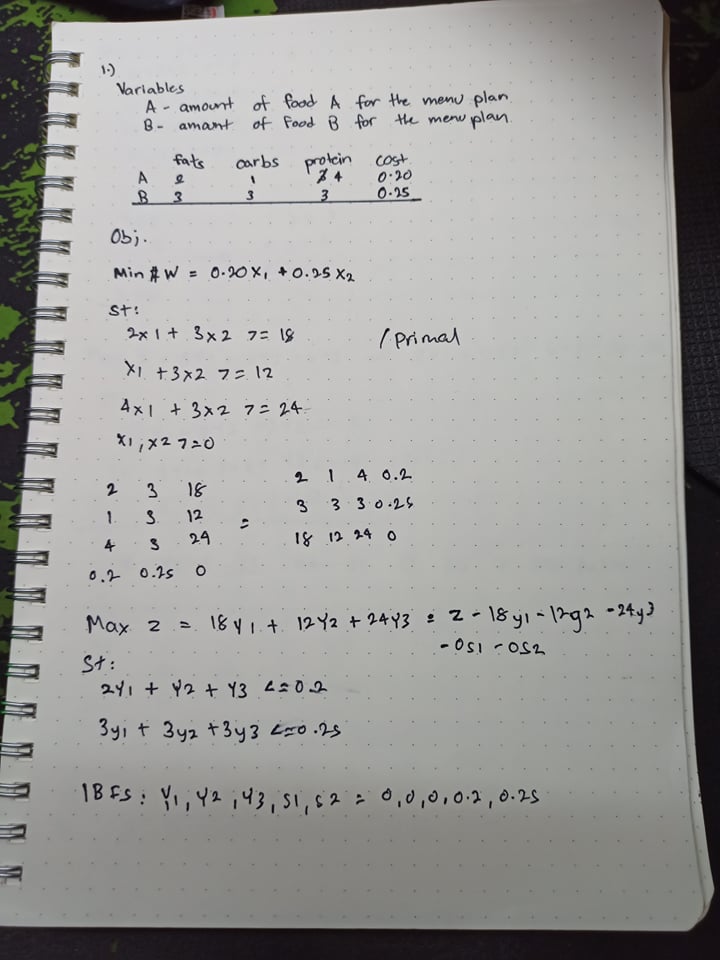 1.)
Variables
A - amount of food A for the menu plan
B - amount of Food B for the menu plan
fats carbs protein cost
A 2 1 4 0.20
B 3 3 3 0.25
Obj.
Min # W = 0.20X1 + 0.25X2
St:
2x1 + 3x2 >= 18 / Primal
X1 + 3x2 >= 12
4x1 + 3x2 >= 24
x1, x2 >= 0
2 3 18
1 3 12
4 3 24
0.2 0.25 0
=
2 1 4 0.2
3 3 3 0.25
18 12 24 0
Max z = 18y1 + 12y2 + 24y3 = z - 18y1 - 12y2 - 24y3
- 0s1 - 0s2
St:
2y1 + y2 + y3 <= 0.2
3y1 + 3y2 + 3y3 <= 0.25
IBFS: Y1, Y2, Y3, S1, S2 = 0, 0, 0, 0.2, 0.25